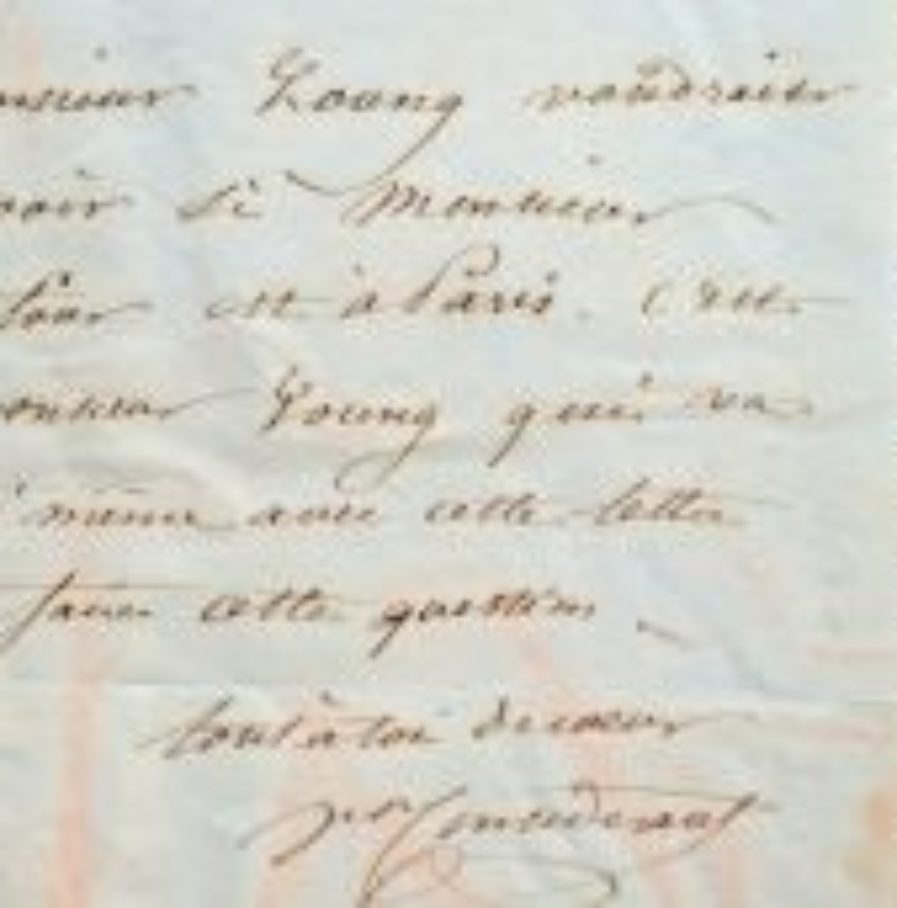 nsieur Young voudrais
voir si Monsieur
est à Paris. C'est
onsieur Young qui va
même avec cette lettre
faire cette question
tout à toi de cœur
Considerant